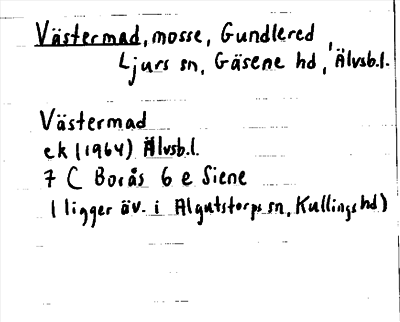 Västermad, mosse, Gundlered,
Ljurs sn, Gäsene hd, Älvsb.l.
Västermad
ek (1964) Älvsb.l.
7 C Borås 6 e Siene
(ligger äv. i Algutstorps sn, Kullings hd)